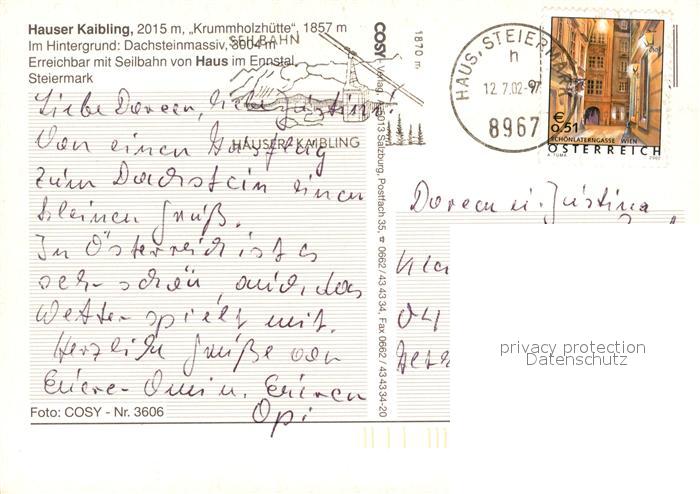 Hauser Kaibling, 2015 m, „Krummholzhütte", 1857 m
Im Hintergrund: Dachsteinmassiv, 3004 m
Erreichbar mit Seilbahn von Haus im Ennstal
Steiermark
SEILBAHN
HAUSER KAIBLING
1870 m
Liebe Doreen, liebe Justina!
Von einen Ausflug
zum Dachstein einen
kleinen Gruß.
In Österreich ist es
sehr schön, auch das
Wetter spielt mit.
Herzliche Grüße von
Eurer Omi u. Euren
Opi
Foto: COSY - Nr. 3606
COSY - Verlag, 5013 Salzburg, Postfach 35, ☎ 0662/43 43 34, Fax 0662/43 43 34-20
HAUS, STEIERMARK
h
12.7.02-97
8967
€ 0,51
SCHÖNLATERNGASSE WIEN
ÖSTERREICH
A. TUMA 2002
Doreen u. Justina
04
privacy protection
Datenschutz